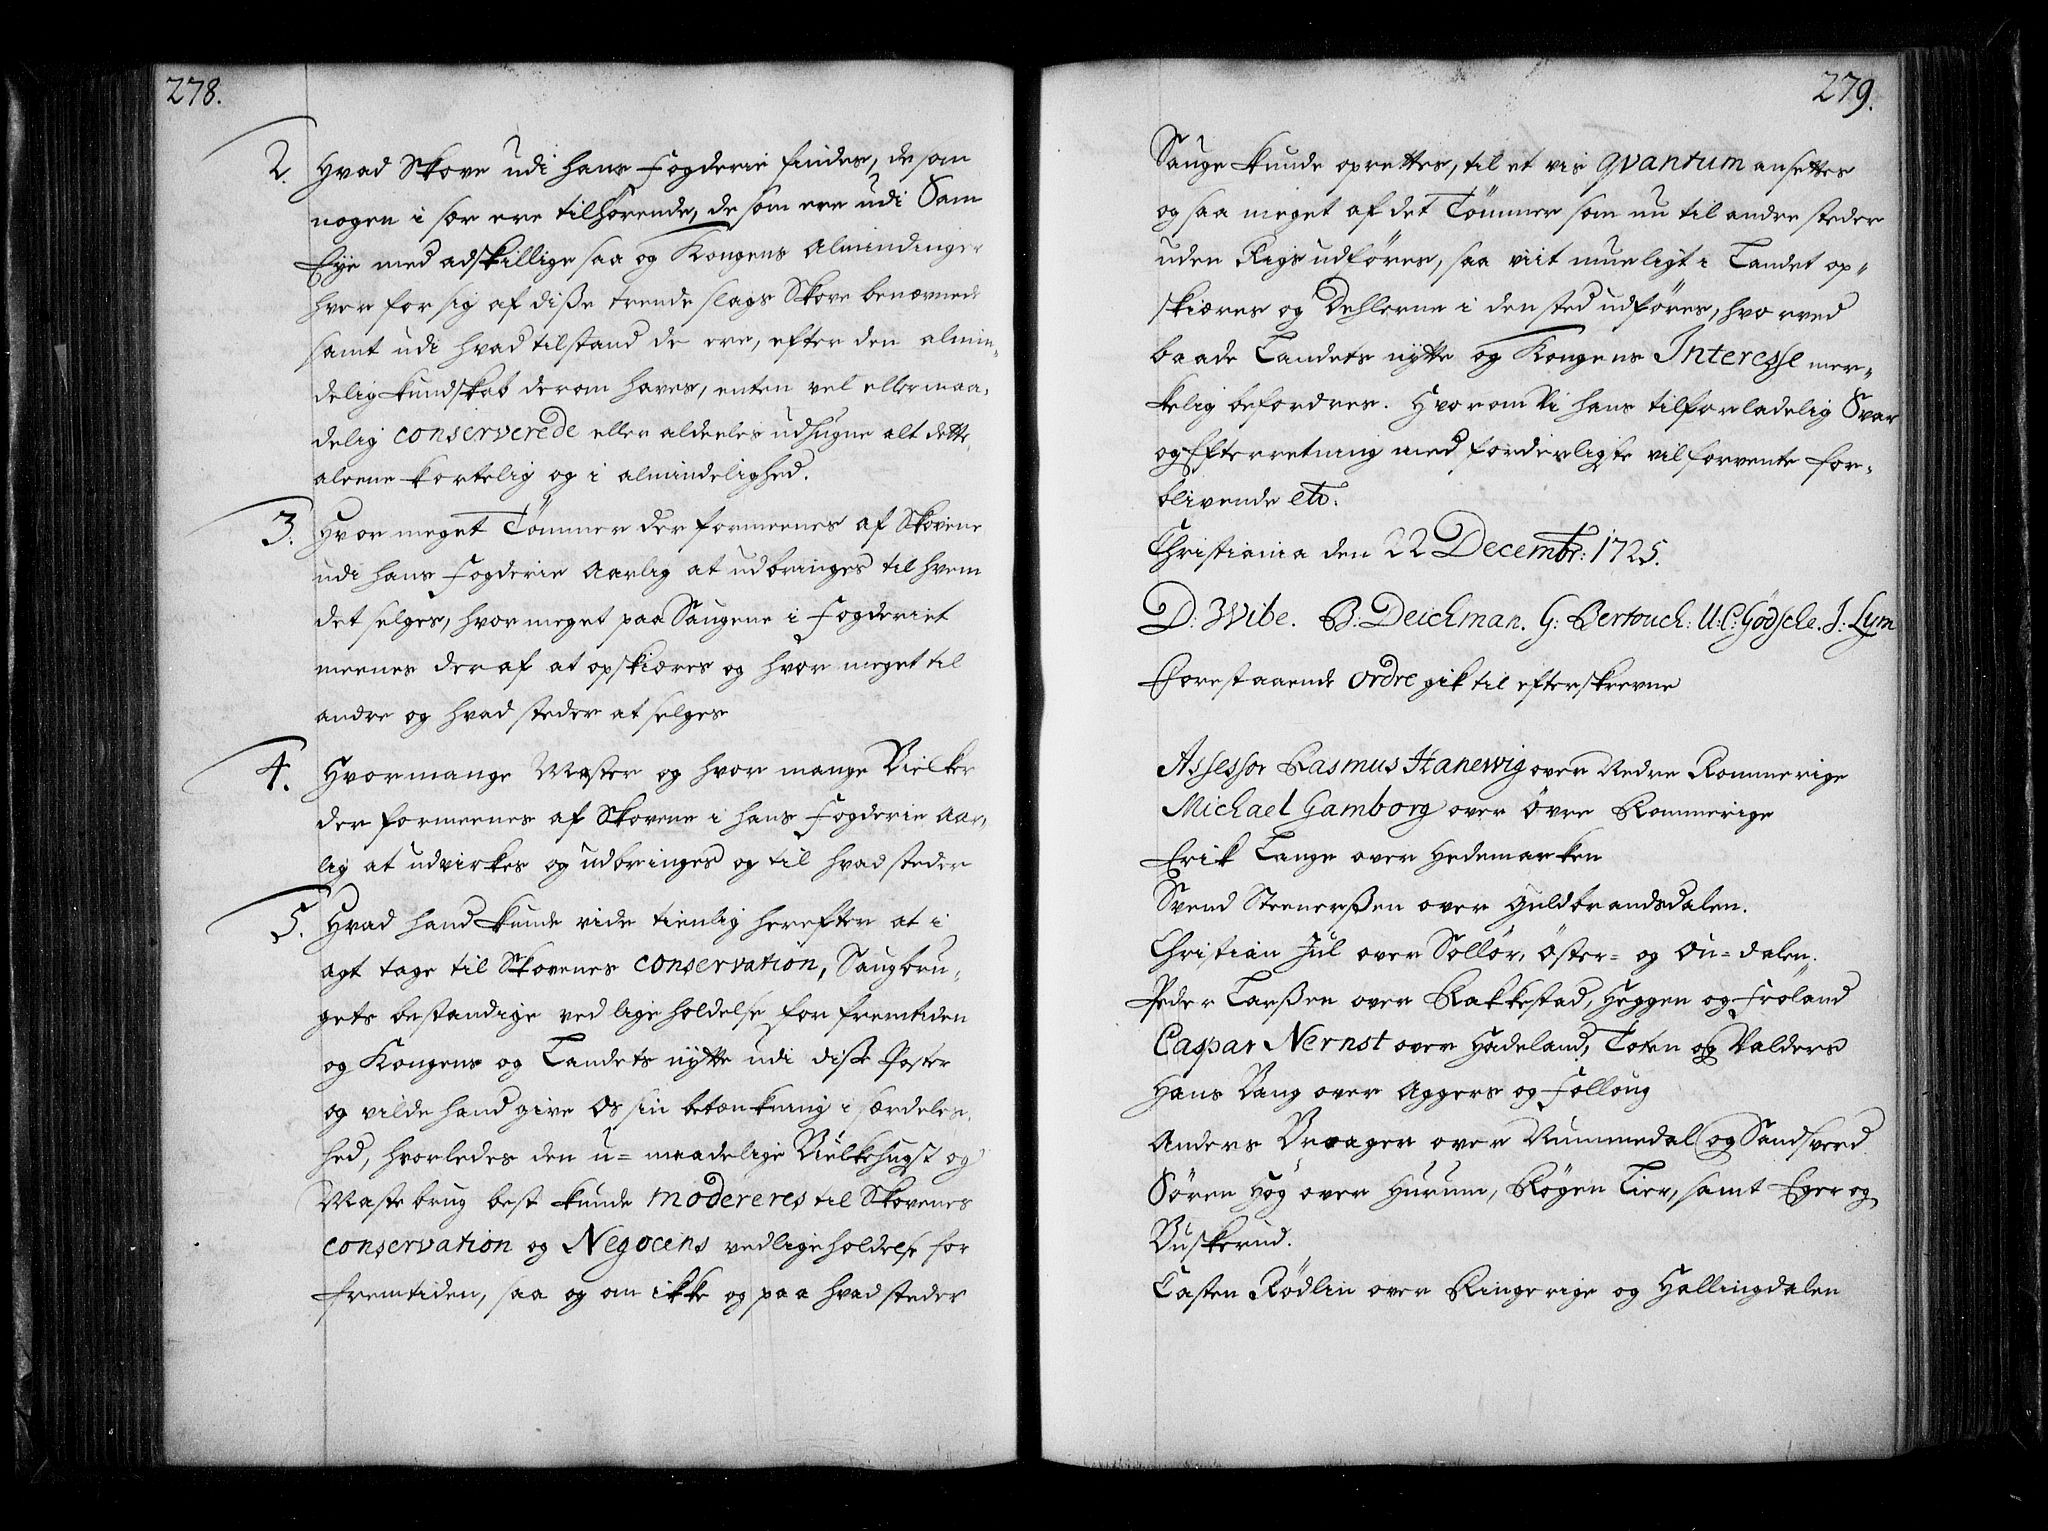 278.
2. Hvad Skove udi hans Fogderie findes, de som
nogen i sær ere tilhørende, de som ere udi Sam
Eÿe med adskillige saa og Kongens Almindinger
hver for sig af diße trende slags Skove benævnede
samt udi hvad tilstand de ere, efter den almin„
delig kundskab derom haves, enten vel eller maa„
delig conserverede eller aldeeles udhugne alt dette
aleene kortelig og i almindelighed.
3. Hvor meget Tömmer der formeenes af Skovene
udi hans Fogderie Aarlig at udbringes til hvem
det selges, hvor meget paa Saugene i Fogderiet
meenes deraf at opskiæres og hvor meget til
andre og hvad steder at selges
4. Hvor mange Master og hvor mange Bielker
der formeenes af Skovene i hans Fogderie Aar„
lig at udvirkes og udbringes og til hvad steder
5. Hvad hand kunde vide tienlig herefter at i
agt tage til Skovenes conservation, Saugbru„
gets bestandige ved lige holdelse for fremtiden
og Kongens og Landets nÿtte udi disse Poster
og vilde hand give Os sin betænkning i særdeles„
hed, hvorledes den u=maadelige Bielkehugst og
Maste brug best kunde modereres til Skovenes
conservation og Negocens vedligeholdelse for
fremtiden, saa og om ikke og paa hvad steder
279.
Sauge kunde oprettes, til et vis qvantum ansettes
og saa meget af det Tömmer som nu til andre steder
uden Rigs udföres, saa viit mueligt i Landet op„
skiæres og Dehlerne i den sted udföres, hvorved
baade Landets nÿtte og Kongens Interesse mer„
kelig befordres. Hvorom Vi hans tilforladelig Svar
og Efterretning med forderligste vil forvente for„
blivende etc.
Christiania den 22 Decembr: 1725.
D: Wibe. B: Deichman. G: Bertouch: U: C: Gödsche. J. Lym
Forestaaende Ordre gik til efterskrevne
Assessor Rasmus Hanewig over Nedre Rommerige
Michael Gamborg over Övre Rommerige
Erik Lange over Hedemarken
Svend Steenerßen over Guldbrandsdalen.
Christian Jul over Sollör, Öster= og Ou=dalen.
Peder Larßen over Rakkestad, Heggen og Fröland
Caspar Nernst over Hadeland, Toten og Valders
Hans Bang over Aggers og Folloug
Anders Vraager over Nummedal og Sandsverd
Sören Høg over Hurum, Røgen Lier, samt Eger og
Buskerud.
Casten Rödlin over Ringerige og Hallingdalen